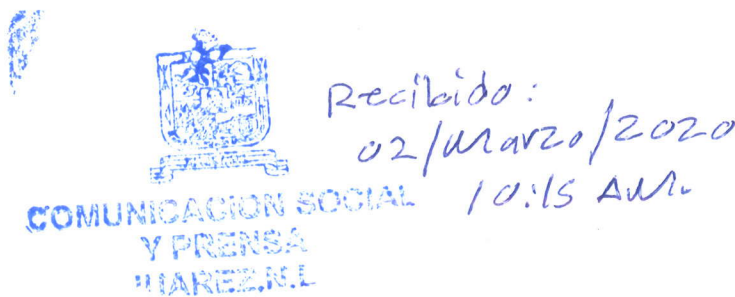 Recibido:
02/Marzo/2020
10:15 AM.
COMUNICACION SOCIAL
Y PRENSA
JUAREZ,N.L